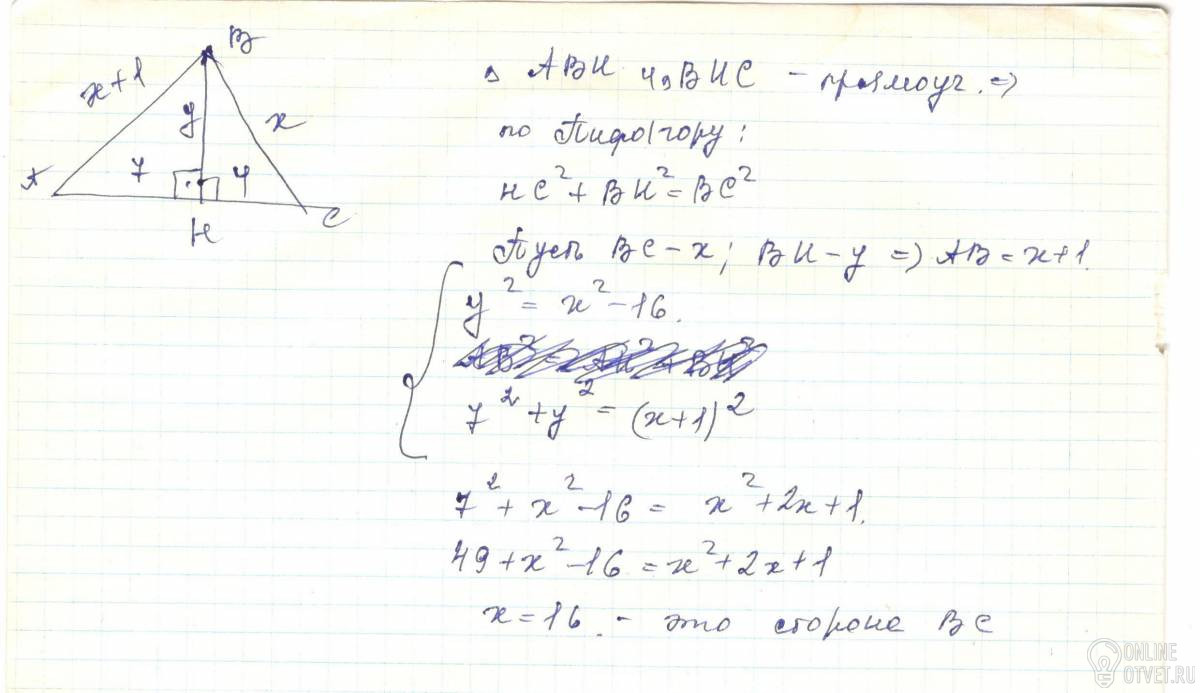 B
x+1
y
x
A
7
4
H
C
Δ ABH и ΔBHC – прямоуг. =>
по Пифагору:
HC² + BH² = BC²
Пусть BC – x; BH – y => AB = x+1.
y² = x² – 16.
7² + y² = (x+1)²
7² + x² – 16 = x² + 2x + 1.
49 + x² – 16 = x² + 2x + 1
x = 16. – это сторона BC
ONLINE
OTVET.RU